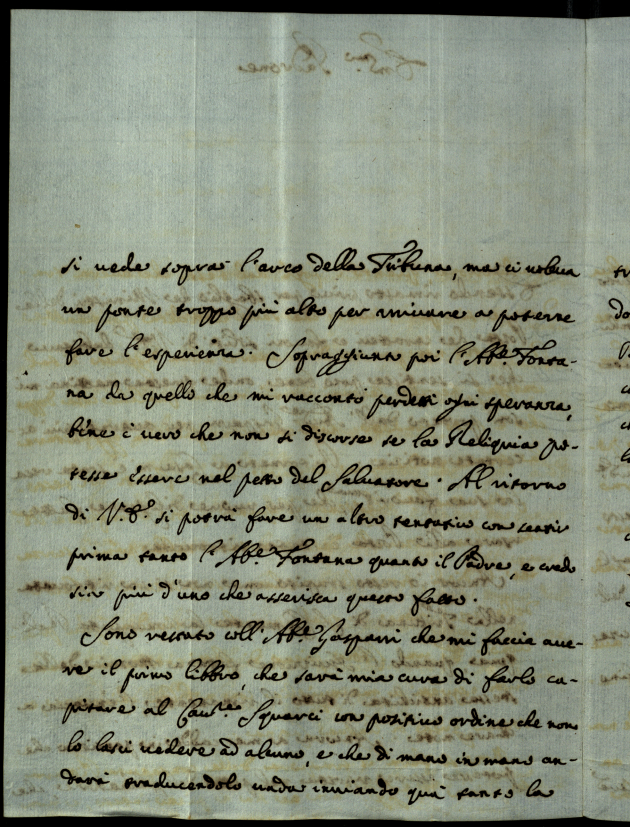 si vede sopra l'arco della Tribuna, ma ci voleva
un ponte troppo più alto per arrivare a poterne
fare l'esperienza. Sopraggiunto poi l'Ab.e Fonta-
na da quello che mi raccontò perdetti ogni speranza,
bène è vero che non si discorse se la Reliquia po-
tesse èssere nel petto del Salvatore. Al ritorno
di V. si potrà fare un altro tentativo con sentir
prima tanto l'Ab.e Fontana quanto il Padre, e credo
sia più d'uno che asserisca questo fatto.
Sono restato coll'Ab.e Gasparri che mi faccia ave-
re il primo libbro, che sarà mia cura di farlo ca-
pitare al Squarci con positivo ordine che non
lo lasci vedere ad alcuno, e che di mano in mano an-
darà traducendolo vada inviando quà tanto la